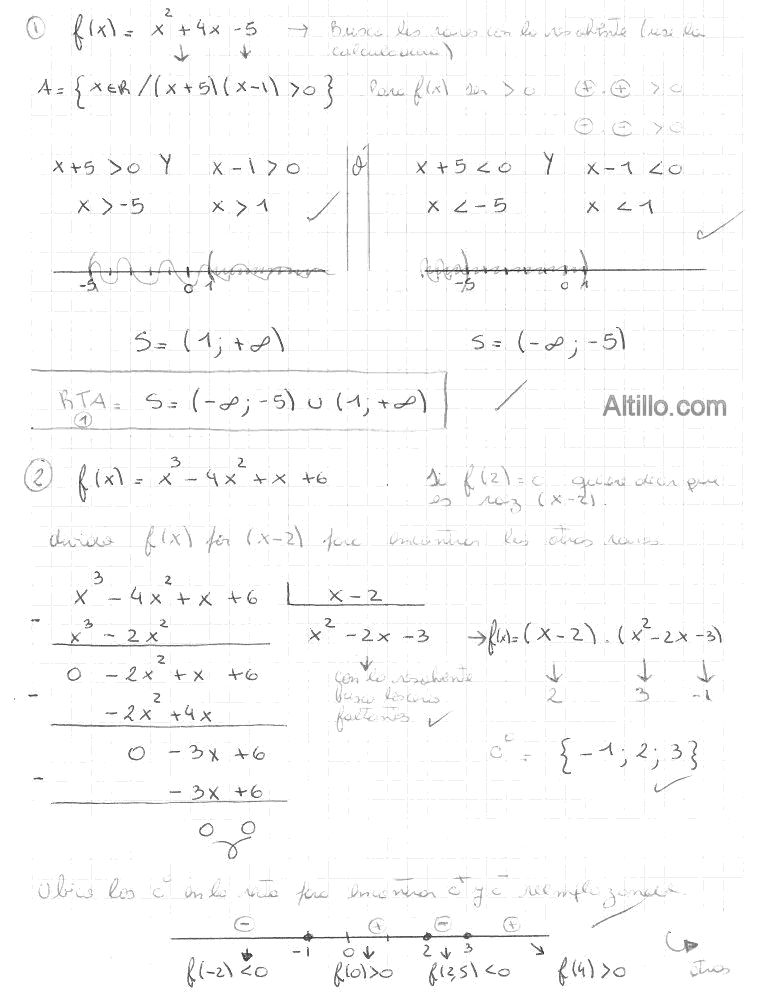 ① f(x) = x² + 4x - 5 → Busco las raíces con la resolvente (use la calculadora)
A = { x ∈ R / (x+5)(x-1) > 0 } Para f(x) ser > 0 ⊕ . ⊕ > 0
⊖ . ⊖ > 0
x+5 > 0 Y x-1 > 0 ó x+5 < 0 Y x-1 < 0
x > -5 x > 1 x < -5 x < 1
-5 0 1 -5 0 1
S = (1; +∞) S = (-∞; -5)
RTA ① = S = (-∞; -5) ∪ (1; +∞)
Altillo.com
② f(x) = x³ - 4x² + x + 6 . Si f(2) = c quiere decir que
es raíz (x-2).
divido f(x) por (x-2) para encontrar las otras raíces
x³ - 4x² + x + 6 | x - 2
- x³ - 2x² x² - 2x - 3 → f(x) = (x-2) . (x² - 2x - 3)
0 - 2x² + x + 6 con la resolvente ↓ ↓ ↓
- - 2x² + 4x busco los otros 2 3 -1
0 - 3x + 6 C⁰ = { -1; 2; 3 }
- - 3x + 6
0 0
Ubico los c⁰ en la recta para encontrar c⁺ y c⁻ reemplazando.
⊖ ⊕ ⊖ ⊕
-1 0 2 3
f(-2) < 0 f(0) > 0 f(2,5) < 0 f(4) > 0 atras